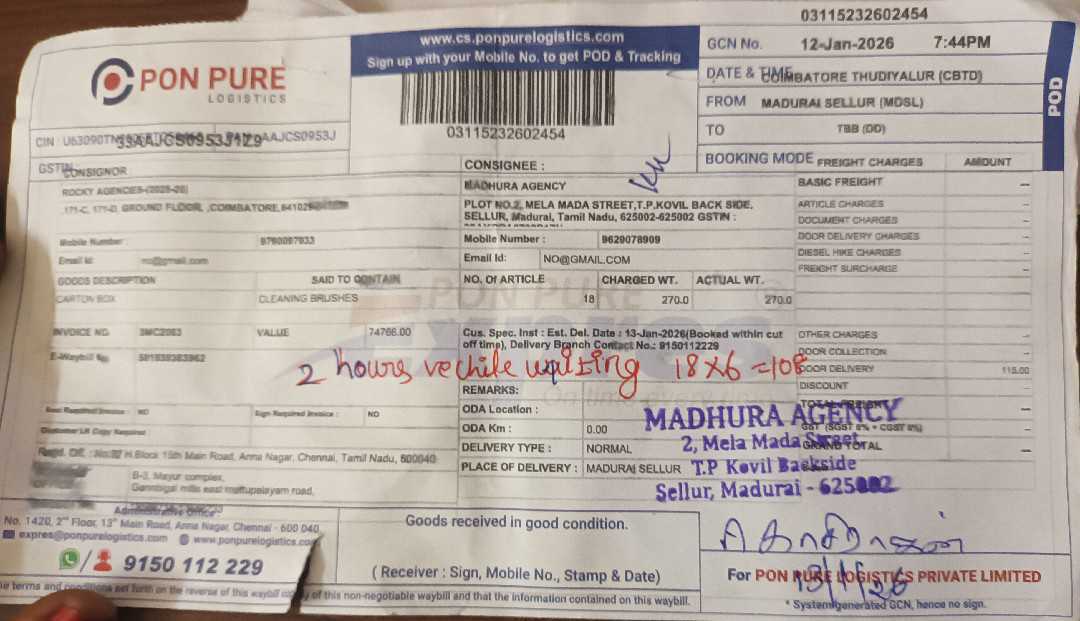 03115232602454
www.cs.ponpurelogistics.com
Sign up with your Mobile No. to get POD & Tracking
PON PURE
LOGISTICS
03115232602454
GCN No. 12-Jan-2026 7:44PM
DATE & TIME COIMBATORE THUDIYALUR (CBTD)
FROM MADURAI SELLUR (MDSL)
TO TBB (DD)
BOOKING MODE
POD
CIN : AAJCS0953J
33AAJCS0953J1Z9
GSTIN:
CONSIGNOR
ROCKY AGENCIES-(2025-26)
171-C, 171-D, GROUND FLOOR, ,COIMBATORE,
Mobile Number :
Email Id: no@gmail.com
CONSIGNEE :
MADHURA AGENCY
PLOT NO.2, MELA MADA STREET,T.P.KOVIL BACK SIDE,
SELLUR, Madurai, Tamil Nadu, 625002-625002 GSTIN :
Mobile Number : 9629078909
Email Id: NO@GMAIL.COM
FREIGHT CHARGES AMOUNT
BASIC FREIGHT --
ARTICLE CHARGES --
DOCUMENT CHARGES --
DOOR DELIVERY CHARGES --
DIESEL HIKE CHARGES --
FREIGHT SURCHARGE --
GOODS DESCRIPTION SAID TO CONTAIN
CARTON BOX CLEANING BRUSHES
NO. Of ARTICLE CHARGED WT. ACTUAL WT.
18 270.0 270.0
PON PURE
INVOICE NO VALUE 74766.00
E-Waybill No
Cus. Spec. Inst : Est. Del. Date : 13-Jan-2026(Booked within cut
off time), Delivery Branch Contact No.: 9150112229
OTHER CHARGES --
DOOR COLLECTION --
DOOR DELIVERY 115.00
DISCOUNT --
TOTAL FREIGHT --
GST (SGST 6% + CGST 6%) --
GRAND TOTAL --
2 hours vechile waiting 18x6=108
REMARKS:
ODA Location :
ODA Km : 0.00
DELIVERY TYPE : NORMAL
PLACE OF DELIVERY : MADURAI SELLUR
Seal Required Invoice : NO Sign Required Invoice : NO
Customer LR Copy Required
MADHURA AGENCY
2, Mela Mada Street
T.P Kovil Backside
Sellur, Madurai - 625002
H.Block 15th Main Road, Anna Nagar, Chennai, Tamil Nadu, 600040
B-3, Mayur complex,
Gannbigai mills east mettupalayam road,
Administrative Office :
No. 1420, 2nd Floor, 13th Main Road, Anna Nagar, Chennai - 600 040
expres@ponpurelogistics.com www.ponpurelogistics.com
9150 112 229
Goods received in good condition.
( Receiver : Sign, Mobile No., Stamp & Date)
13/1/26
For PON PURE LOGISTICS PRIVATE LIMITED
* System generated GCN, hence no sign.
terms and conditions set forth on the reverse of this waybill of this non-negotiable waybill and that the information contained on this waybill.